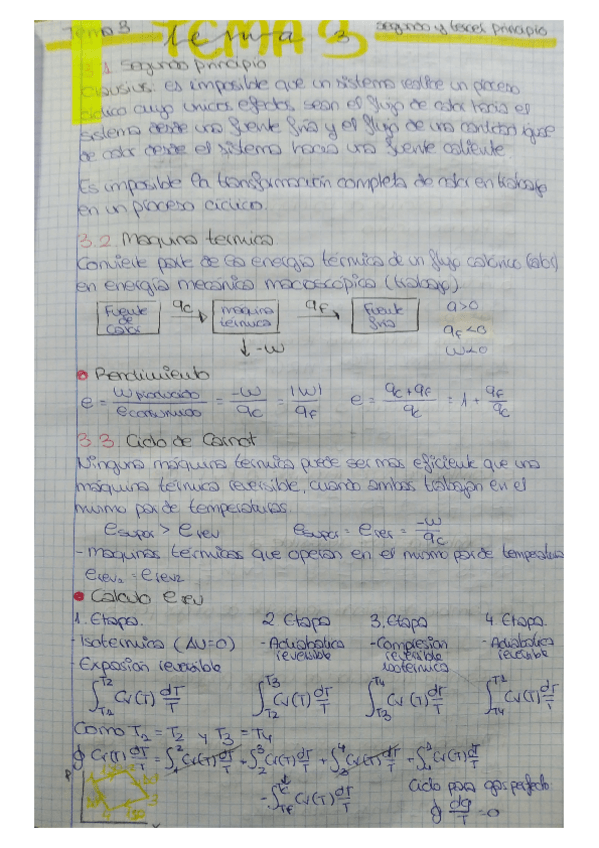 Tema 3 tema 3 segundo y tercer principio
TEMA 3
3.1. Segundo principio
Clausius: es imposible que un sistema realice un proceso
cíclico cuyo unicos efectos sean el flujo de calor hacia el
sistema desde una fuente fría y el flujo de una cantidad igual
de calor desde el sistema hacia una fuente caliente.
Es imposible la transformación completa de calor en trabajo
en un proceso cíclico.
3.2. Maquina termica
Convierte parte de la energía térmica de un flujo calórico (calor)
en energía mecánica macroscópica (trabajo).
Fuente de calor qc → máquina térmica qF → Fuente fría q>0
qF<0
↓ -W W<0
• Rendimiento
e = W producido / e consumido = -W/qc = |W|/qF e = qc+qF/qc = 1 + qF/qc
3.3. Ciclo de Carnot
Ninguna máquina térmica puede ser mas eficiente que una
máquina térmica reversible, cuando ambas trabajan en el
mismo par de temperaturas.
e super > e rev e super = e rev = -W/qc
- maquinas térmicas que operan en el mismo par de temperatura
e rev1 = e rev2
• Calculo e rev
1. Etapa. 2 Etapa 3. Etapa 4 Etapa.
- Isotermica (ΔU=0) - Adiabatica reversible - Compresion reversible isotermica - Adiabatica reversible
- Expasion reversible
∫T2T2 Cv(T) dT/T ∫T2T3 Cv(T) dT/T ∫T3T4 Cv(T) dT/T ∫T4 Cv(T) dT/T
Como T2 = T2 y T3 = T4
∮ Cv(T) dT/T = ∫ Cv(T) dT/T + ∫23 Cv(T) dT/T + ∫34 Cv(T) dT/T + ∫ Cv(T) dT/T
- ∫ Cv(T) dT/T Ciclo para gas perfecto
∮ dq/T = 0